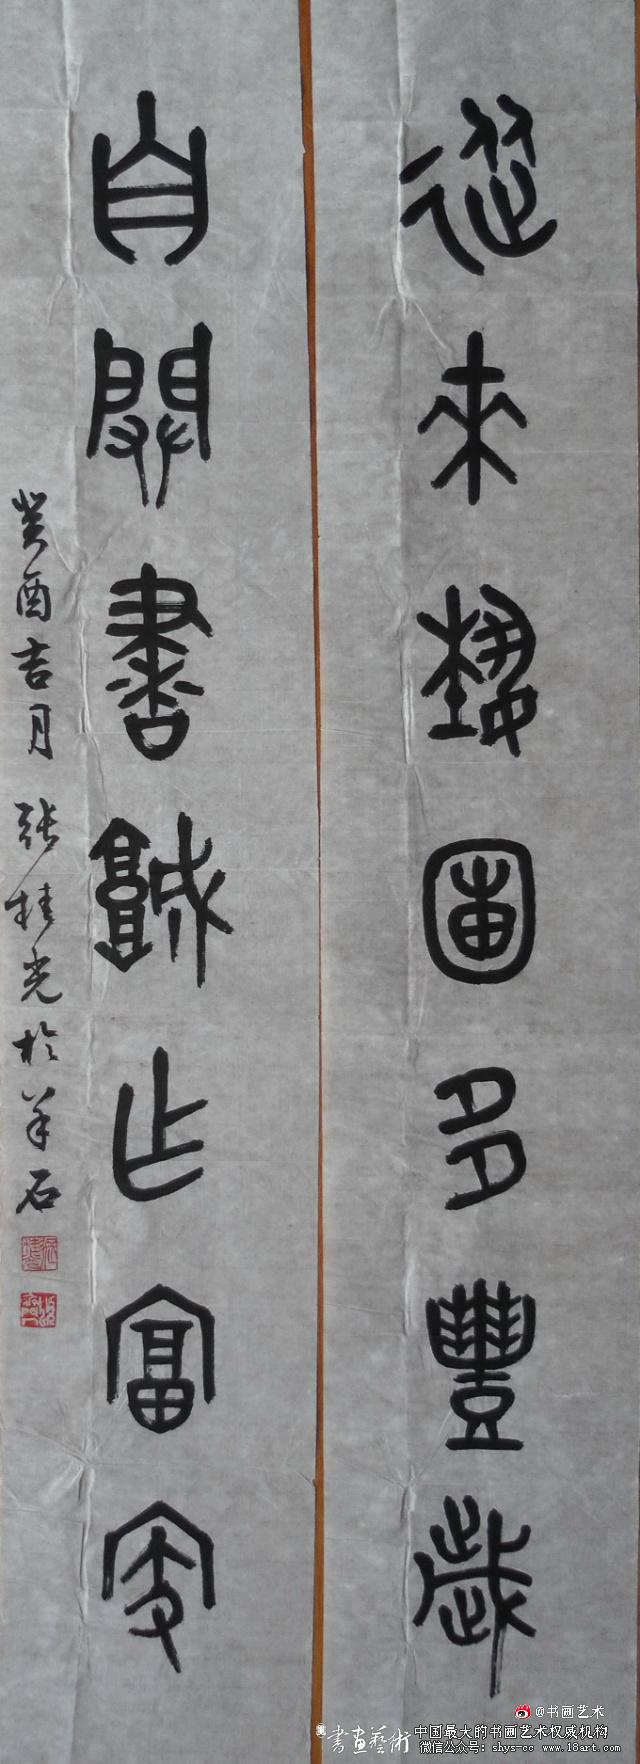 從來藝圃多豐歲
自闢書城作富家
癸酉吉月 張桂光於羊石
@书画艺术
書畫藝術
中国最大的书画艺术权威机构
微信公众号：shys-cc www.18art.com